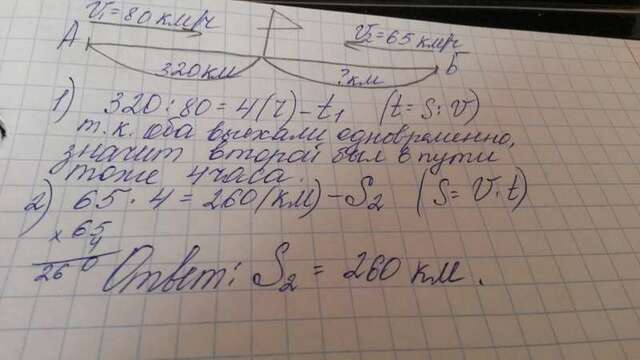 V₁=80 км/ч
V₂=65 км/ч
А
320 км
? км
Б
1) 320 : 80 = 4 (ч) - t₁ (t = S : V)
т. к. оба выехали одновременно,
значит второй был в пути
тоже 4 часа.
2) 65 · 4 = 260 (км) - S₂ (S = V · t)
× 65
4
260
Ответ: S₂ = 260 км.